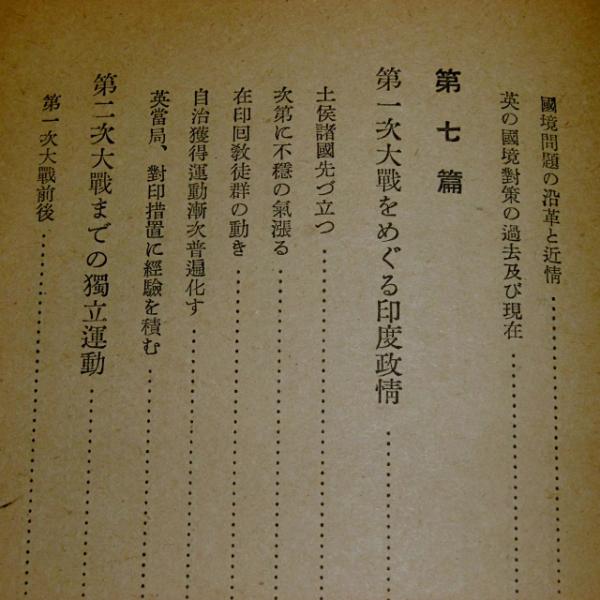 國境問題の沿革と近情
英の國境對策の過去及び現在
第七篇
第一次大戰をめぐる印度政情
土侯諸國先づ立つ
次第に不穩の氣漲る
在印回敎徒群の動き
自治獲得運動漸次普遍化す
英當局、對印措置に經驗を積む
第二次大戰までの獨立運動
第一次大戰前後